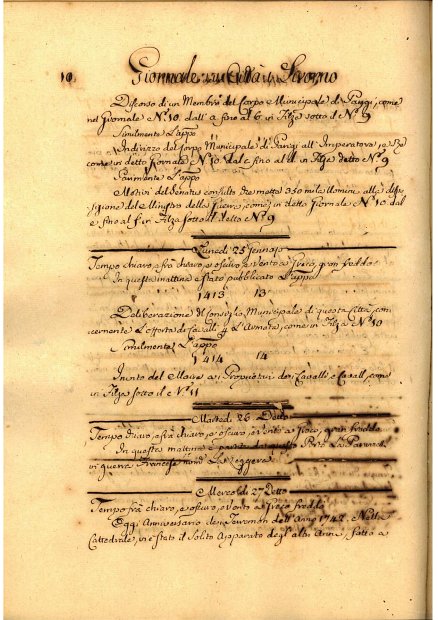 10 Giornale Città Livorno
Discorso di un Membro del Corpo Municipale di Parigi, come
nel Giornale N.º 10. dall' a fino al 6 in Filza sotto il N.º 9
Similmente L'appo
Indirizzo del Corpo Municipale di Parigi all' Imperatore, e Re
come in detto Giornale N.º 10. dal c fino al d in Filza detto N.º 9
L'appo
Motivi del Senatus consulto che mette 350 mila Uomini alla dispo
sizione del Ministro della Guerra, come in detto Giornale N.º 10. dal
e fino al f in Filza sotto il detto N.º 9
Lunedì 25 Gennajo
Tempo chiaro, e frà chiaro, e oscuro, e vento a Greco, gran freddo
In questa mattina è stato pubblicato L'appo
1413 13
Deliberazione del Consiglio Municipale di questa Città, con
cernente L'offerta di Cavalli p. L'Armata, come in Filza N.º 10
Similmente L'appo
1414 14
Invito del Maire ai Proprietari dei Cavalli, e Cavall, come
in Filza sotto il N.º 11
Martedì 26 Detto
Tempo chiaro, e frà chiaro, e oscuro, e vento a Greco, gran freddo
In questa mattina è da questo Porto La
in guerra Francese nom.
Mercoledì 27 Detto
Tempo frà chiaro, e oscuro, e vento a Greco freddo
Oggi Anniversario dei Terremoti dell' Anno 1742. Nella
Cattedrale, vi è stato il Solito Apparato degl' altri Anni, fatto a